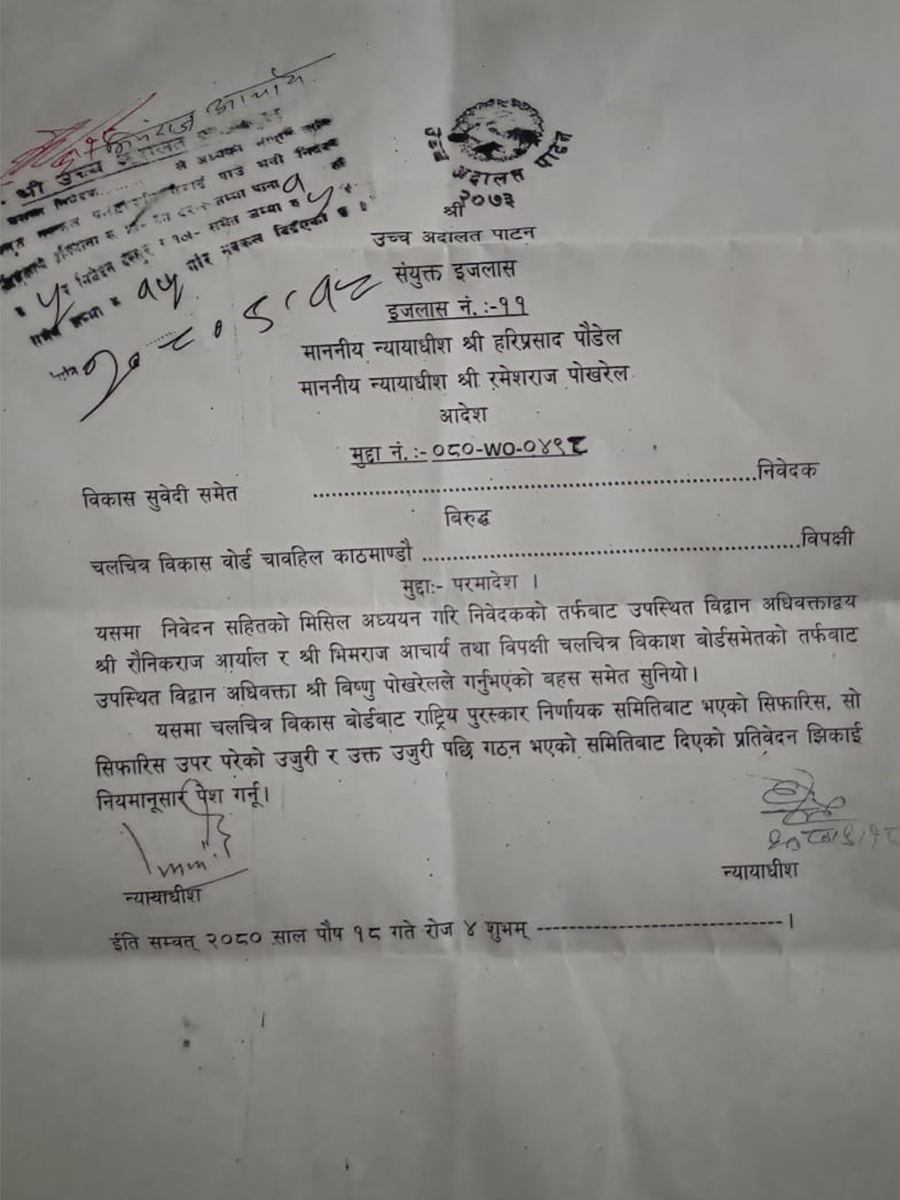 भिमराज आचार्य
श्री उच्च अदालत
उच्च अदालत पाटन
२०७३
श्री
उच्च अदालत पाटन
संयुक्त इजलास
इजलास नं. :-११
माननीय न्यायाधीश श्री हरिप्रसाद पौडेल
माननीय न्यायाधीश श्री रमेशराज पोखरेल
आदेश
मुद्दा नं. :- ०८०-WO-०४९८
विकास सुवेदी समेत ................................................................निवेदक
विरुद्ध
चलचित्र विकास वोर्ड चावहिल काठमाण्डौ ......................................................विपक्षी
मुद्दाः- परमादेश ।
यसमा निवेदन सहितको मिसिल अध्ययन गरि निवेदकको तर्फबाट उपस्थित विद्वान अधिवक्ताद्वय
श्री रौनिकराज आर्याल र श्री भिमराज आचार्य तथा विपक्षी चलचित्र विकाश बोर्डसमेतको तर्फबाट
उपस्थित विद्वान अधिवक्ता श्री बिष्णु पोखरेलले गर्नुभएको वहस समेत सुनियो।
यसमा चलचित्र विकास बोर्डबाट राष्ट्रिय पुरस्कार निर्णायक समितिबाट भएको सिफारिस, सो
सिफारिस उपर परेको उजुरी र उक्त उजुरी पछि गठन भएको समितिबाट दिएको प्रतिवेदन झिकाई
नियमानूसार पेश गर्नू।
न्यायाधीश
न्यायाधीश
ईति सम्वत् २०८० साल पौष १८ गते रोज ४ शुभम् ------------------------------।